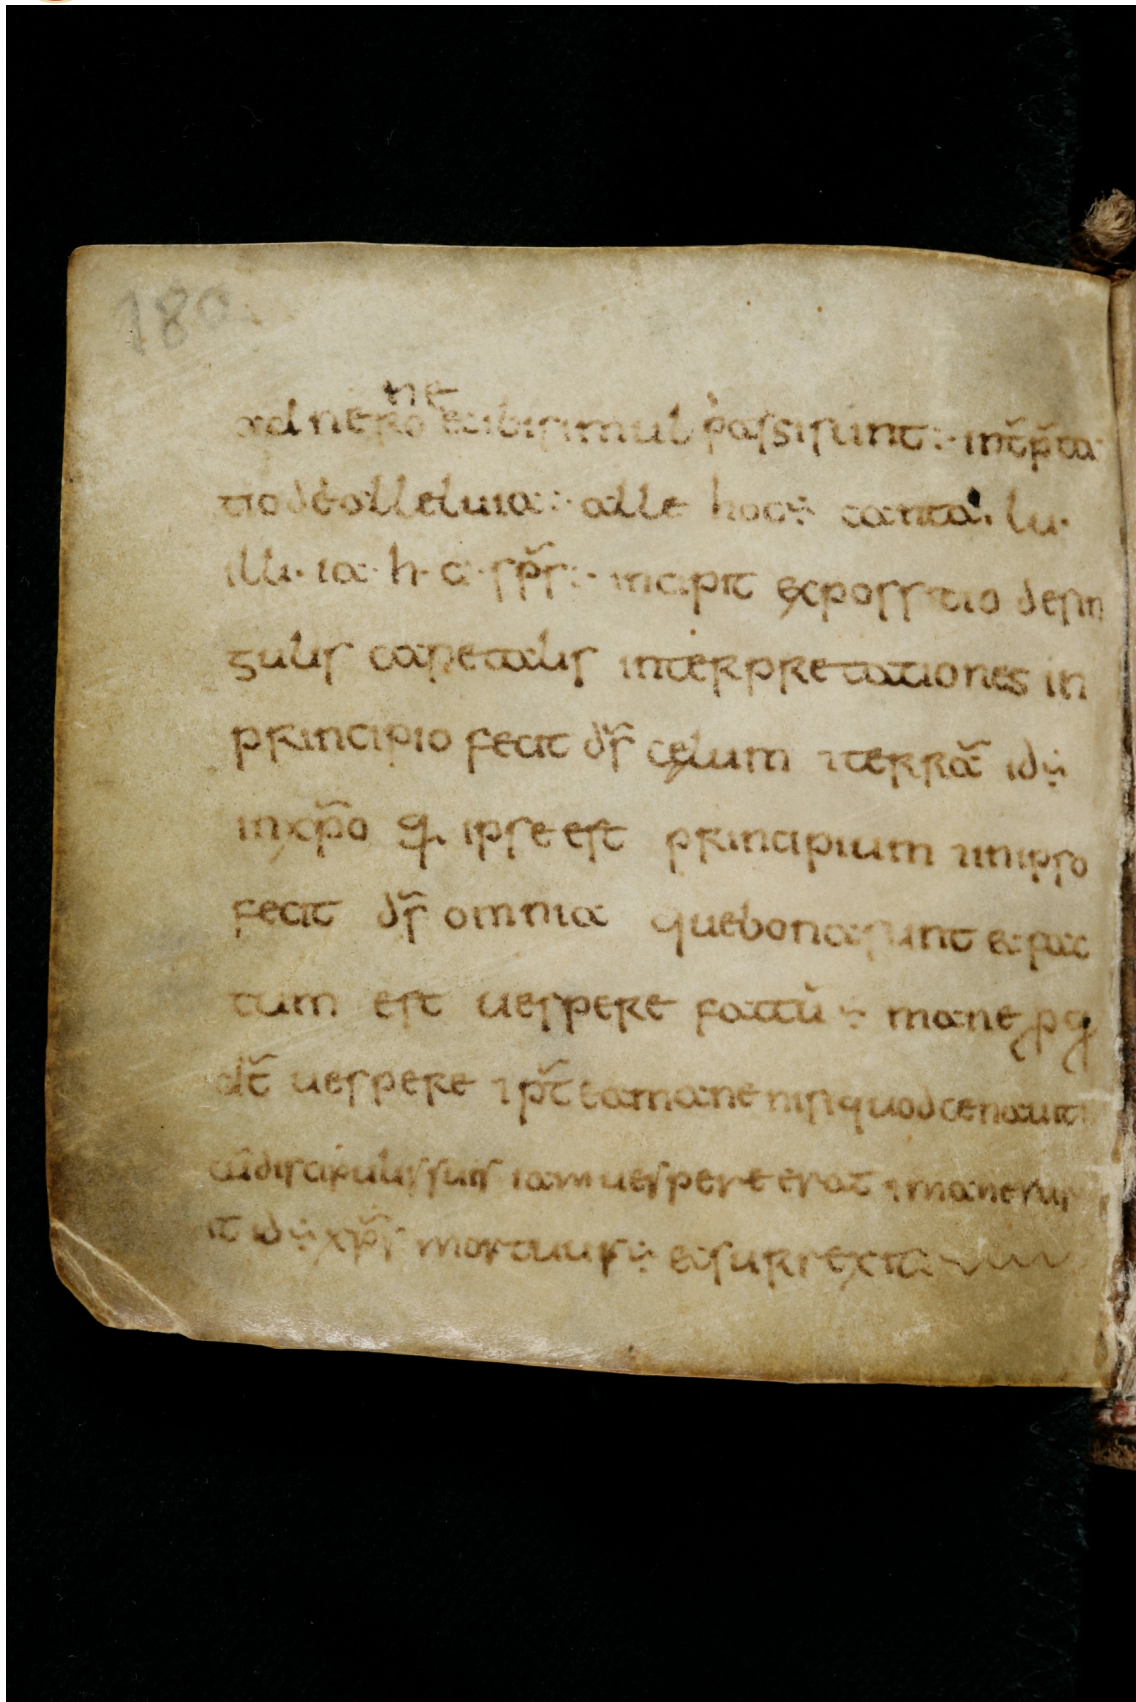 180
ne
ad nero & ibi simul passi sunt :· int̄p̄ta
tio de alleluia :· alle hoc ÷ canta. lu.
illi· ia· h· c· sp̄s :· incipit expossitio de sin
gulis canetalis interpretationes in
principio fecit d̄s celum ⁊ terrā id ÷
in xp̄o q. ipse est principium ⁊ in ipso
fecit d̄s omnia que bona sunt & fac
tum est uespere factū ÷ mane
uespere ⁊ mane nisi quod cenauit
cū discipulis suis iam uespere erat ⁊ mane
it id ÷ xp̄s mortuus ÷ & surrexit